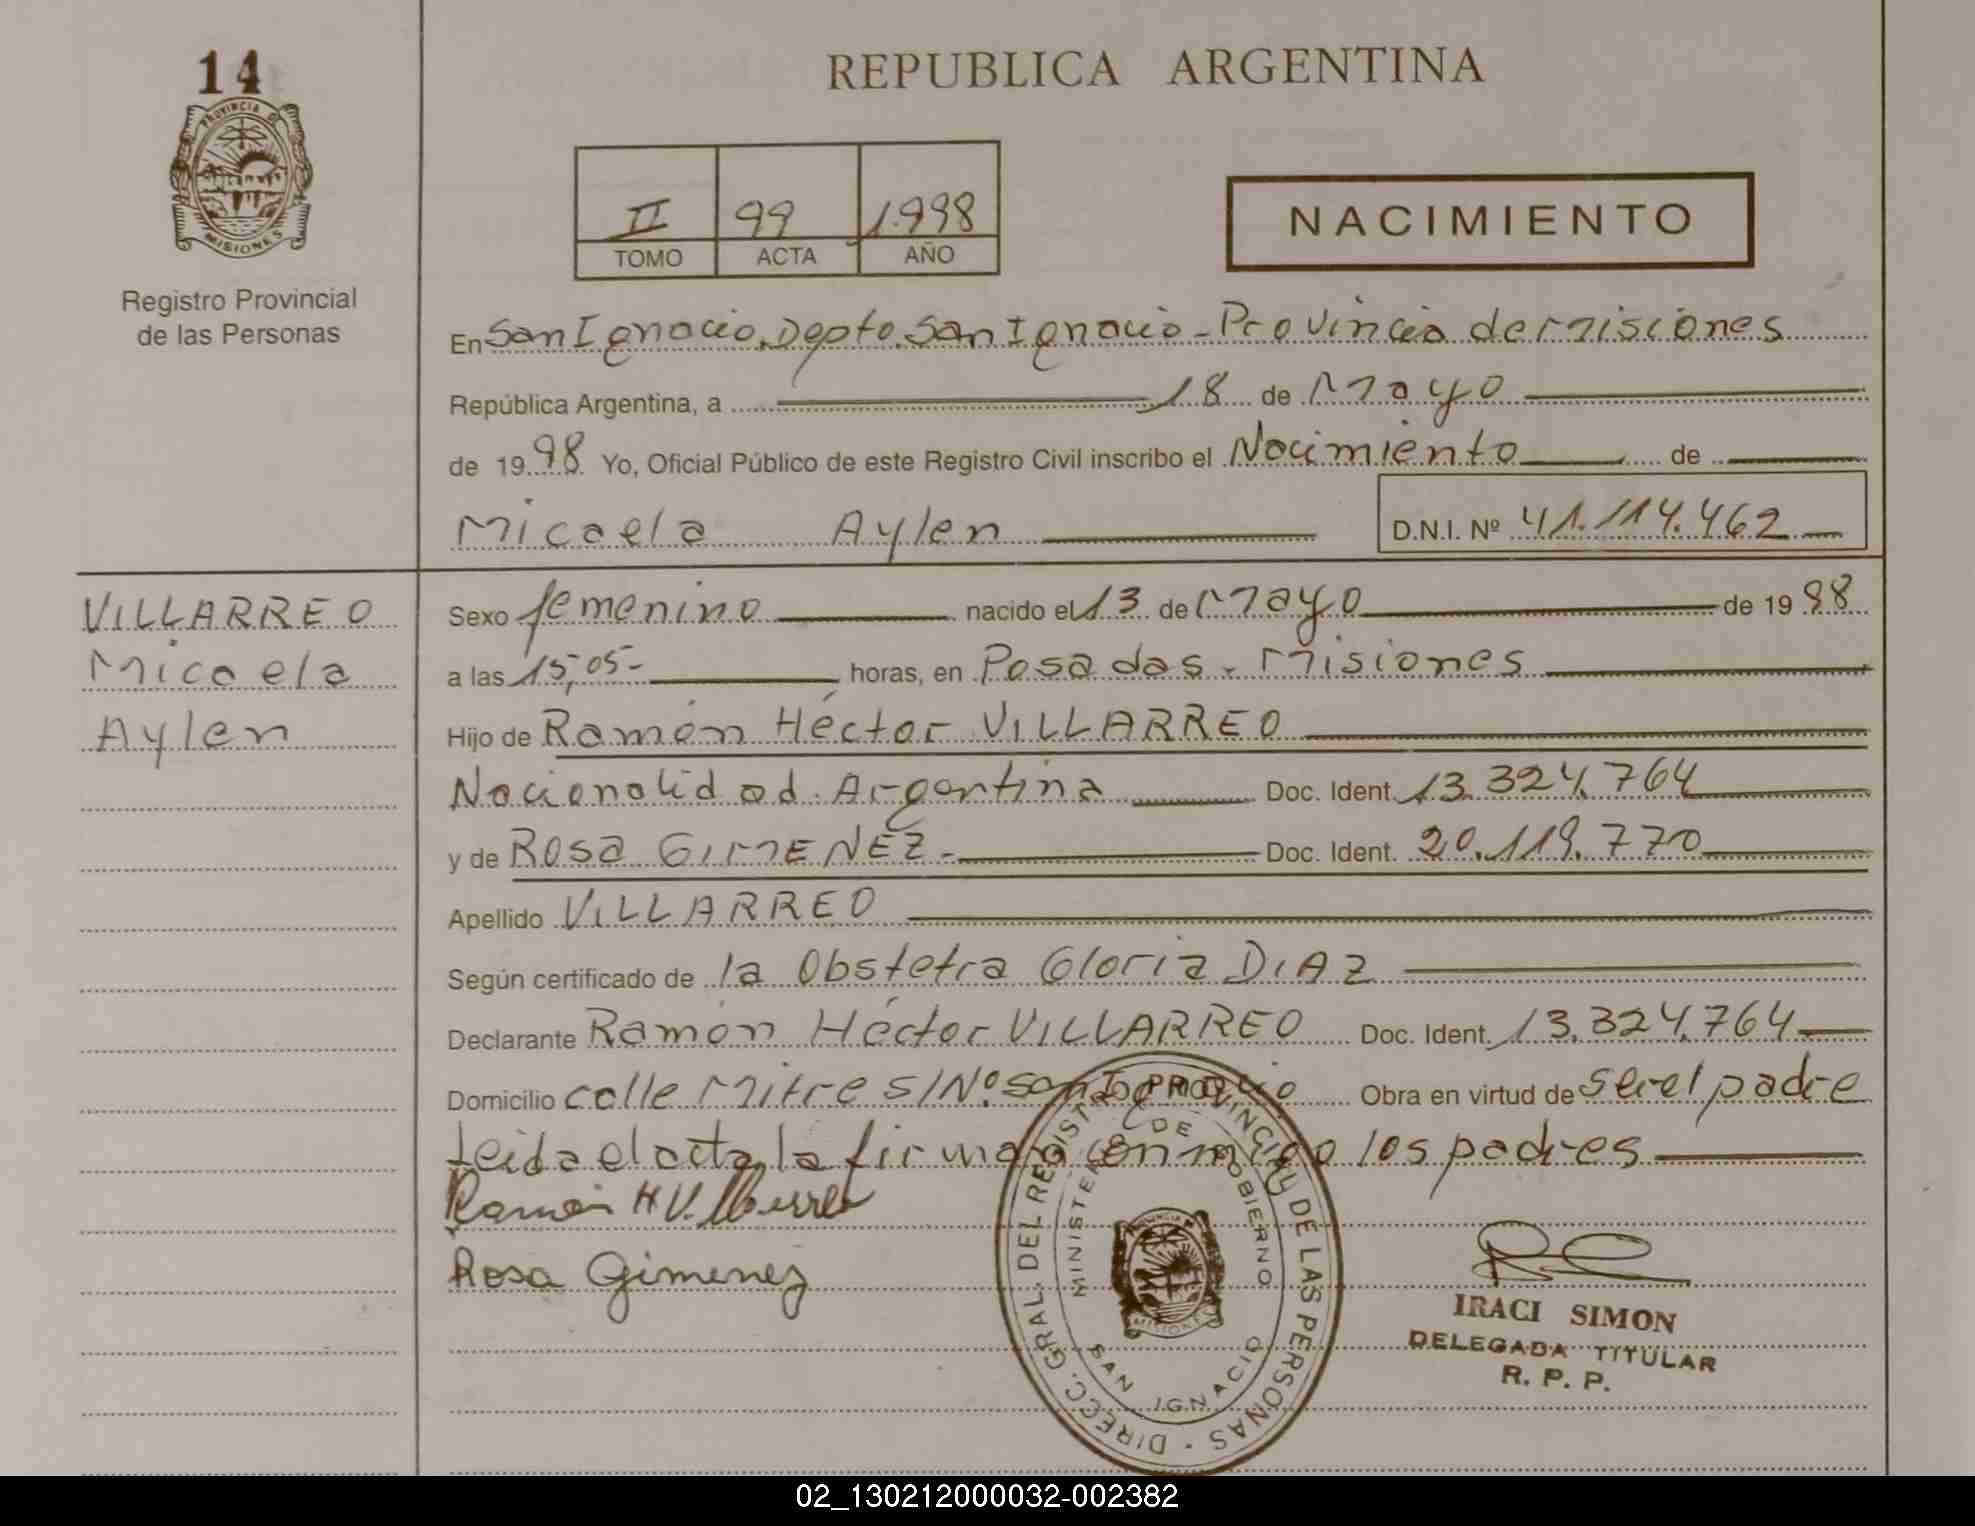 14
REPUBLICA ARGENTINA
PROVINCIA DE
MISIONES
Registro Provincial
de las Personas
II 99 1.998
TOMO ACTA AÑO
NACIMIENTO
En San Ignacio, Depto. San Ignacio - Provincia de Misiones
República Argentina, a 18 de Mayo
de 1998 Yo, Oficial Público de este Registro Civil inscribo el Nacimiento de
Micaela Aylen D.N.I. Nº 41.114.462
VILLARREO
Micaela
Aylen
Sexo femenino nacido el 13 de Mayo de 1998
a las 15,05- horas, en Posadas - Misiones
Hijo de Ramón Héctor VILLARREO
Nacionalidad Argentina Doc. Ident. 13.324.764
y de Rosa GIMENEZ - Doc. Ident. 20.119.770
Apellido VILLARREO
Según certificado de la Obstetra Gloria DIAZ
Declarante Ramón Héctor VILLARREO Doc. Ident. 13.324.764
Domicilio calle Mitre S/Nº San Ignacio Obra en virtud de ser el padre
Leida el acta, la firman conmigo los padres
Ramón H Villarreo
Rosa Gimenez
DIRECC. GRAL. DEL REGISTRO PROVINCIAL DE LAS PERSONAS
MINISTERIO DE GOBIERNO
MISIONES
SAN IGNACIO
IRACI SIMON
DELEGADA TITULAR
R. P. P.
02_130212000032-002382